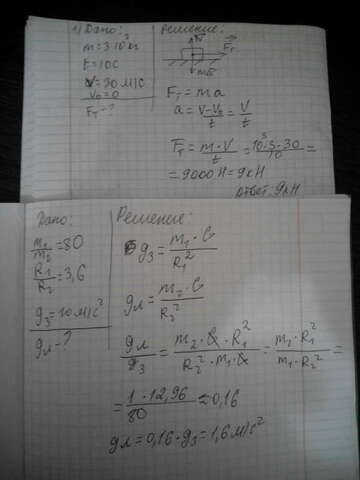 1) Дано:
m=3·10³ кг
t=10с
V=30 м/с
V₀=0
Fт-?
Решение:
N
Fт
mg
Fт = ma
a = V-V₀/t = V/t
Fт = m·V/t = 10³·3·30/10 =
= 9000 Н = 9кН
Ответ: 9кН
Дано:
m₁/m₂=80
R₁/R₂=3,6
gз=10 м/с²
gл-?
Решение:
gз = m₁·G/R₁²
gл = m₂·G/R₂²
gл/gз = m₂·G·R₁²/R₂²·m₁·G = m₂·R₁²/m₁·R₂² =
= 1·12,96/80 ≈ 0,16
gл=0,16·gз=1,6 м/с²